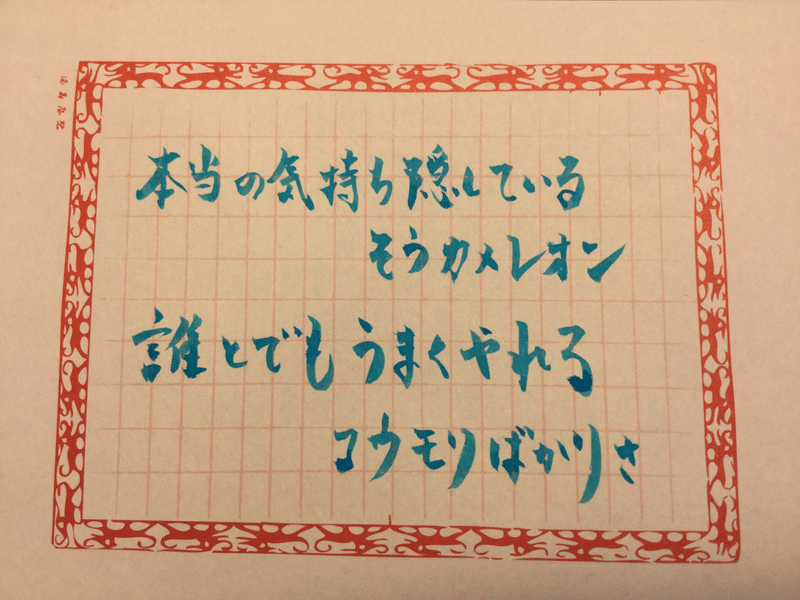 本当の気持ち隠している
そうカメレオン
誰とでもうまくやれる
コウモリばかりさ